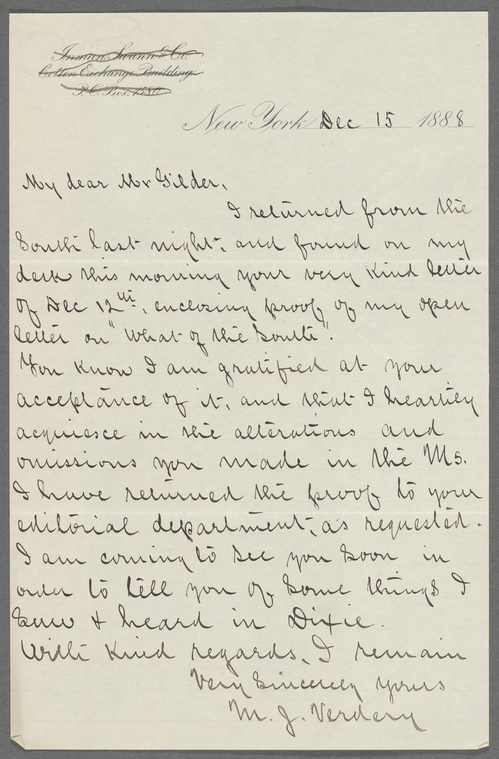 Inman, Swann & Co.
Cotton Exchange Building
P.O. Box 1580
New York Dec 15 1888
My dear Mr Gilder,
I returned from the
South last night, and found on my
desk this morning your very kind letter
of Dec 12th, enclosing proof of my open
letter on "What of the South".
You know I am gratified at your
acceptance of it, and that I heartily
acquiesce in the alterations and
omissions you made in the Ms.
I have returned the proof to your
editorial department, as requested.
I am coming to see you soon in
order to tell you of some things I
saw & heard in Dixie.
With kind regards, I remain
Very Sincerely yours
M. J. Verdery